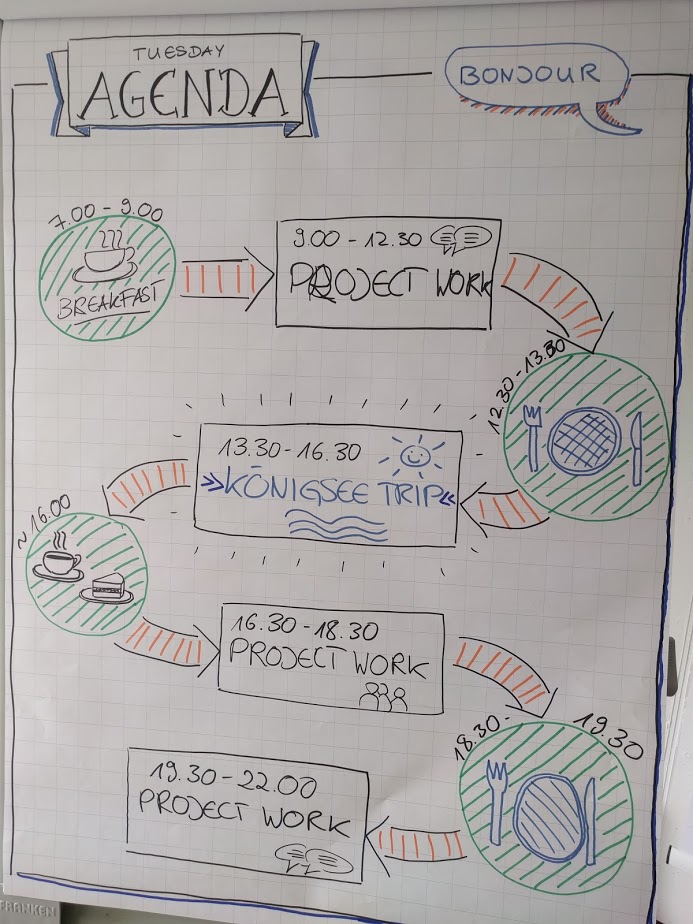 TUESDAY
AGENDA
BONJOUR
7.00 - 9.00
BREAKFAST
9.00 - 12.30
PROJECT WORK
12.30 - 13.30
13.30 - 16.30
»KÖNIGSEE TRIP«
~ 16.00
16.30 - 18.30
PROJECT WORK
18.30 - 19.30
19.30 - 22.00
PROJECT WORK
FRANKEN